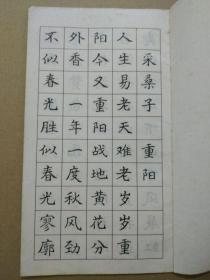 采桑子 重阳
人生易老天难老岁岁重
阳今又重阳战地黄花分
外香 一年一度秋风劲
不似春光胜似春光寥廓